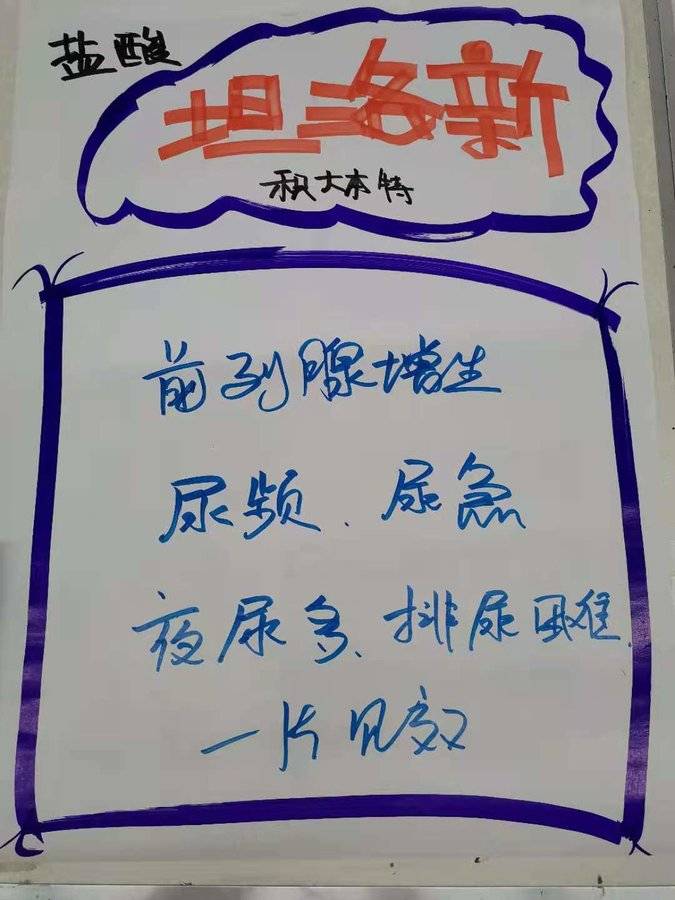 盐酸
坦洛新
积大本特
前列腺增生
尿频、尿急
夜尿多、排尿困难
一片见效